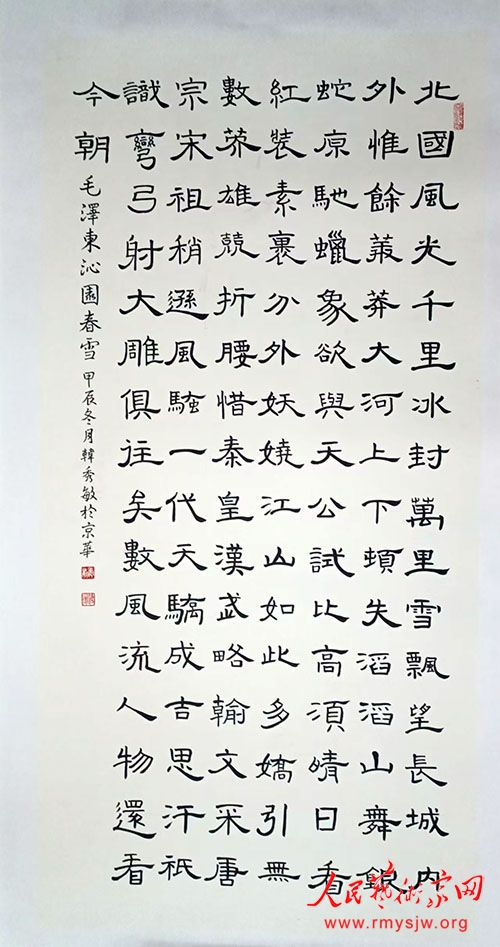 北國風光千里冰封萬里雪飄望長城内
外惟餘莽莽大河上下頓失滔滔山舞銀
蛇原馳蠟象欲與天公試比高須晴日看
紅裝素裹分外妖嬈江山如此多嬌引無
數英雄競折腰惜秦皇漢武略輸文采唐
宗宋祖稍遜風騷一代天驕成吉思汗祇
識彎弓射大雕俱往矣數風流人物還看
今朝 毛澤東沁園春雪 甲辰冬月韓秀敏於京華
人民藝術家网
www.rmysjw.org